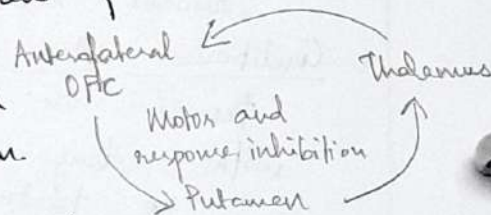 Anterolateral
OFC
Thalamus
Motor and
response inhibition
Putamen